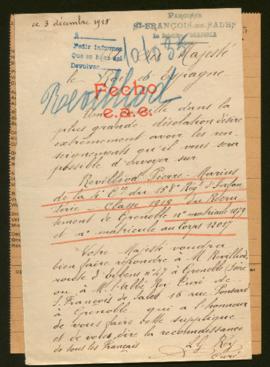 ce 3 décembre 1918
Paroisse
St-FRANÇOIS-DE-SALES
A
Pedir informes
Que se hizo del
Devolver
Majesté
le Roi d'Espagne
Revilliod
Fecho
e.a.e.
dans la
plus grande désolation désire
extrêmement avoir les ren
seignements qu'il vous sera
possible d'envoyer sur
Revilliod Pierre-Marius
de la 4e Cie du 158e Rgt d'Infan
terie Classe 1919 du Recru
tement de Grenoble no matricule 1079
et no matricule au corps
Votre Majesté voudra
bien faire répondre à M. Revilliod,
route d'Eybens no 47 à Grenoble Isère
ou à M. l'abbé Rey Curé de
St François de Sales 16 rue
à Grenoble qui a l'honneur
de vous faire cette supplique
et de vous dire la reconnaissance
de tous les Français
Rey
Curé